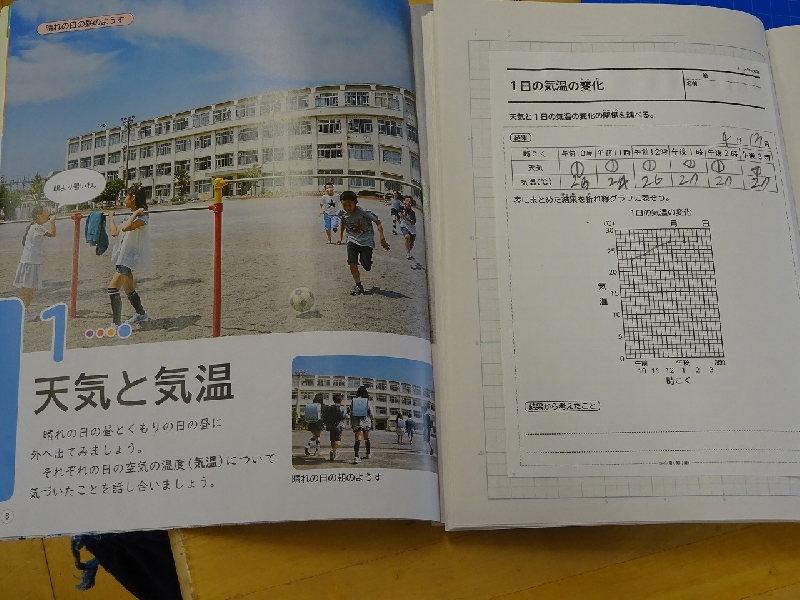 晴れの日の昼のようす
朝より暑いね。
1
天気と気温
晴れの日の昼とくもりの日の昼に
外へ出てみましょう。
それぞれの日の空気の温度(気温)について
気づいたことを話し合いましょう。
晴れの日の朝のようす
8
1日の気温の変化
名前
天気と1日の気温の変化の関係を調べる。
結果
時こく 午前10時 午前11時 午前12時 午後1時 午後2時 午後3時
天気
気温(℃) 26
表にまとめた結果を折れ線グラフに表そう。
1日の気温の変化
(℃) 月 日
30
25
20
15
10
5
0
気温
午前 午後 (時)
10 11 12 1 2 3
時こく
結果から考えたこと